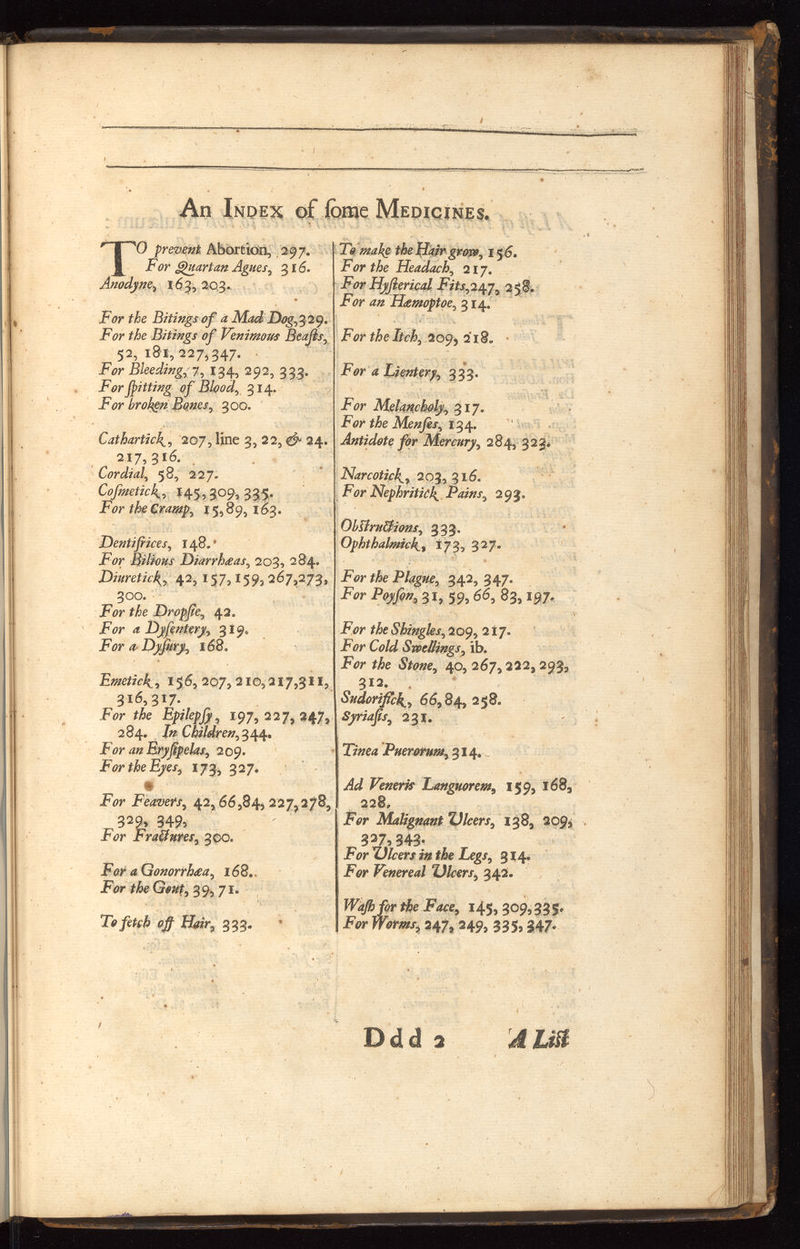 An INDEX of ſome MEDICINES.
TO prevent Abortion, 297.
For Quartan Agues, 316.
Anodyne, 163, 203.
For the Bitings of a Mad Dog, 329.
For the Bitings of Venimous Beaſts,
52, 181, 227, 347.
For Bleeding, 7, 134, 292, 333.
For ſpitting of Blood, 314.
For broken Bones, 300.
Cathartick, 207, line 3, 22, & 24.
217, 316.
Cordial, 58, 227.
Coſmetick, 145, 309, 335.
For the Cramp, 15, 89, 163.
Dentifrices, 148.
For Bilious Diarrhæas, 203, 284.
Diuretick, 42, 157, 159, 267, 273,
300.
For the Dropſie, 42.
For a Dyſentery, 319.
For a Dyſury, 168.
Emetick, 156, 207, 210, 217, 311,
316, 317.
For the Epilepſy, 197, 227, 247,
284. In Children, 344.
For an Eryſipelas, 209.
For the Eyes, 173, 327.
For Feavers, 42, 66, 84, 227, 278,
329, 349,
For Fractures, 300.
For a Gonorrhæa, 168.
For the Gout, 39, 71.
To fetch off Hair, 333.
To make the Hair grow, 156.
For the Headach, 217.
For Hyſterical Fits, 247, 258.
For an Hæmoptoe, 314.
For the Itch, 209, 218.
For a Lientery, 333.
For Melancholy, 317.
For the Menſes, 134.
Antidote for Mercury, 284, 323.
Narcotick, 203, 316.
For Nephritick Pains, 293.
Obſtructions, 333.
Ophthalmick, 173, 327.
For the Plague, 342, 347.
For Poyſon, 31, 59, 66, 83, 197.
For the Shingles, 209, 217.
For Cold Swellings, ib.
For the Stone, 40, 267, 222, 293,
312.
Sudorifick, 66, 84, 258.
Syriaſis, 231.
Tinea Puerorum, 314.
Ad Veneris Languorem, 159, 168,
228.
For Malignant Ulcers, 138, 209,
327, 343.
For Ulcers in the Legs, 314.
For Venereal Ulcers, 342.
Waſh for the Face, 145, 309, 335.
For Worms, 247, 249, 335, 347.
Ddd 2 A Liſt